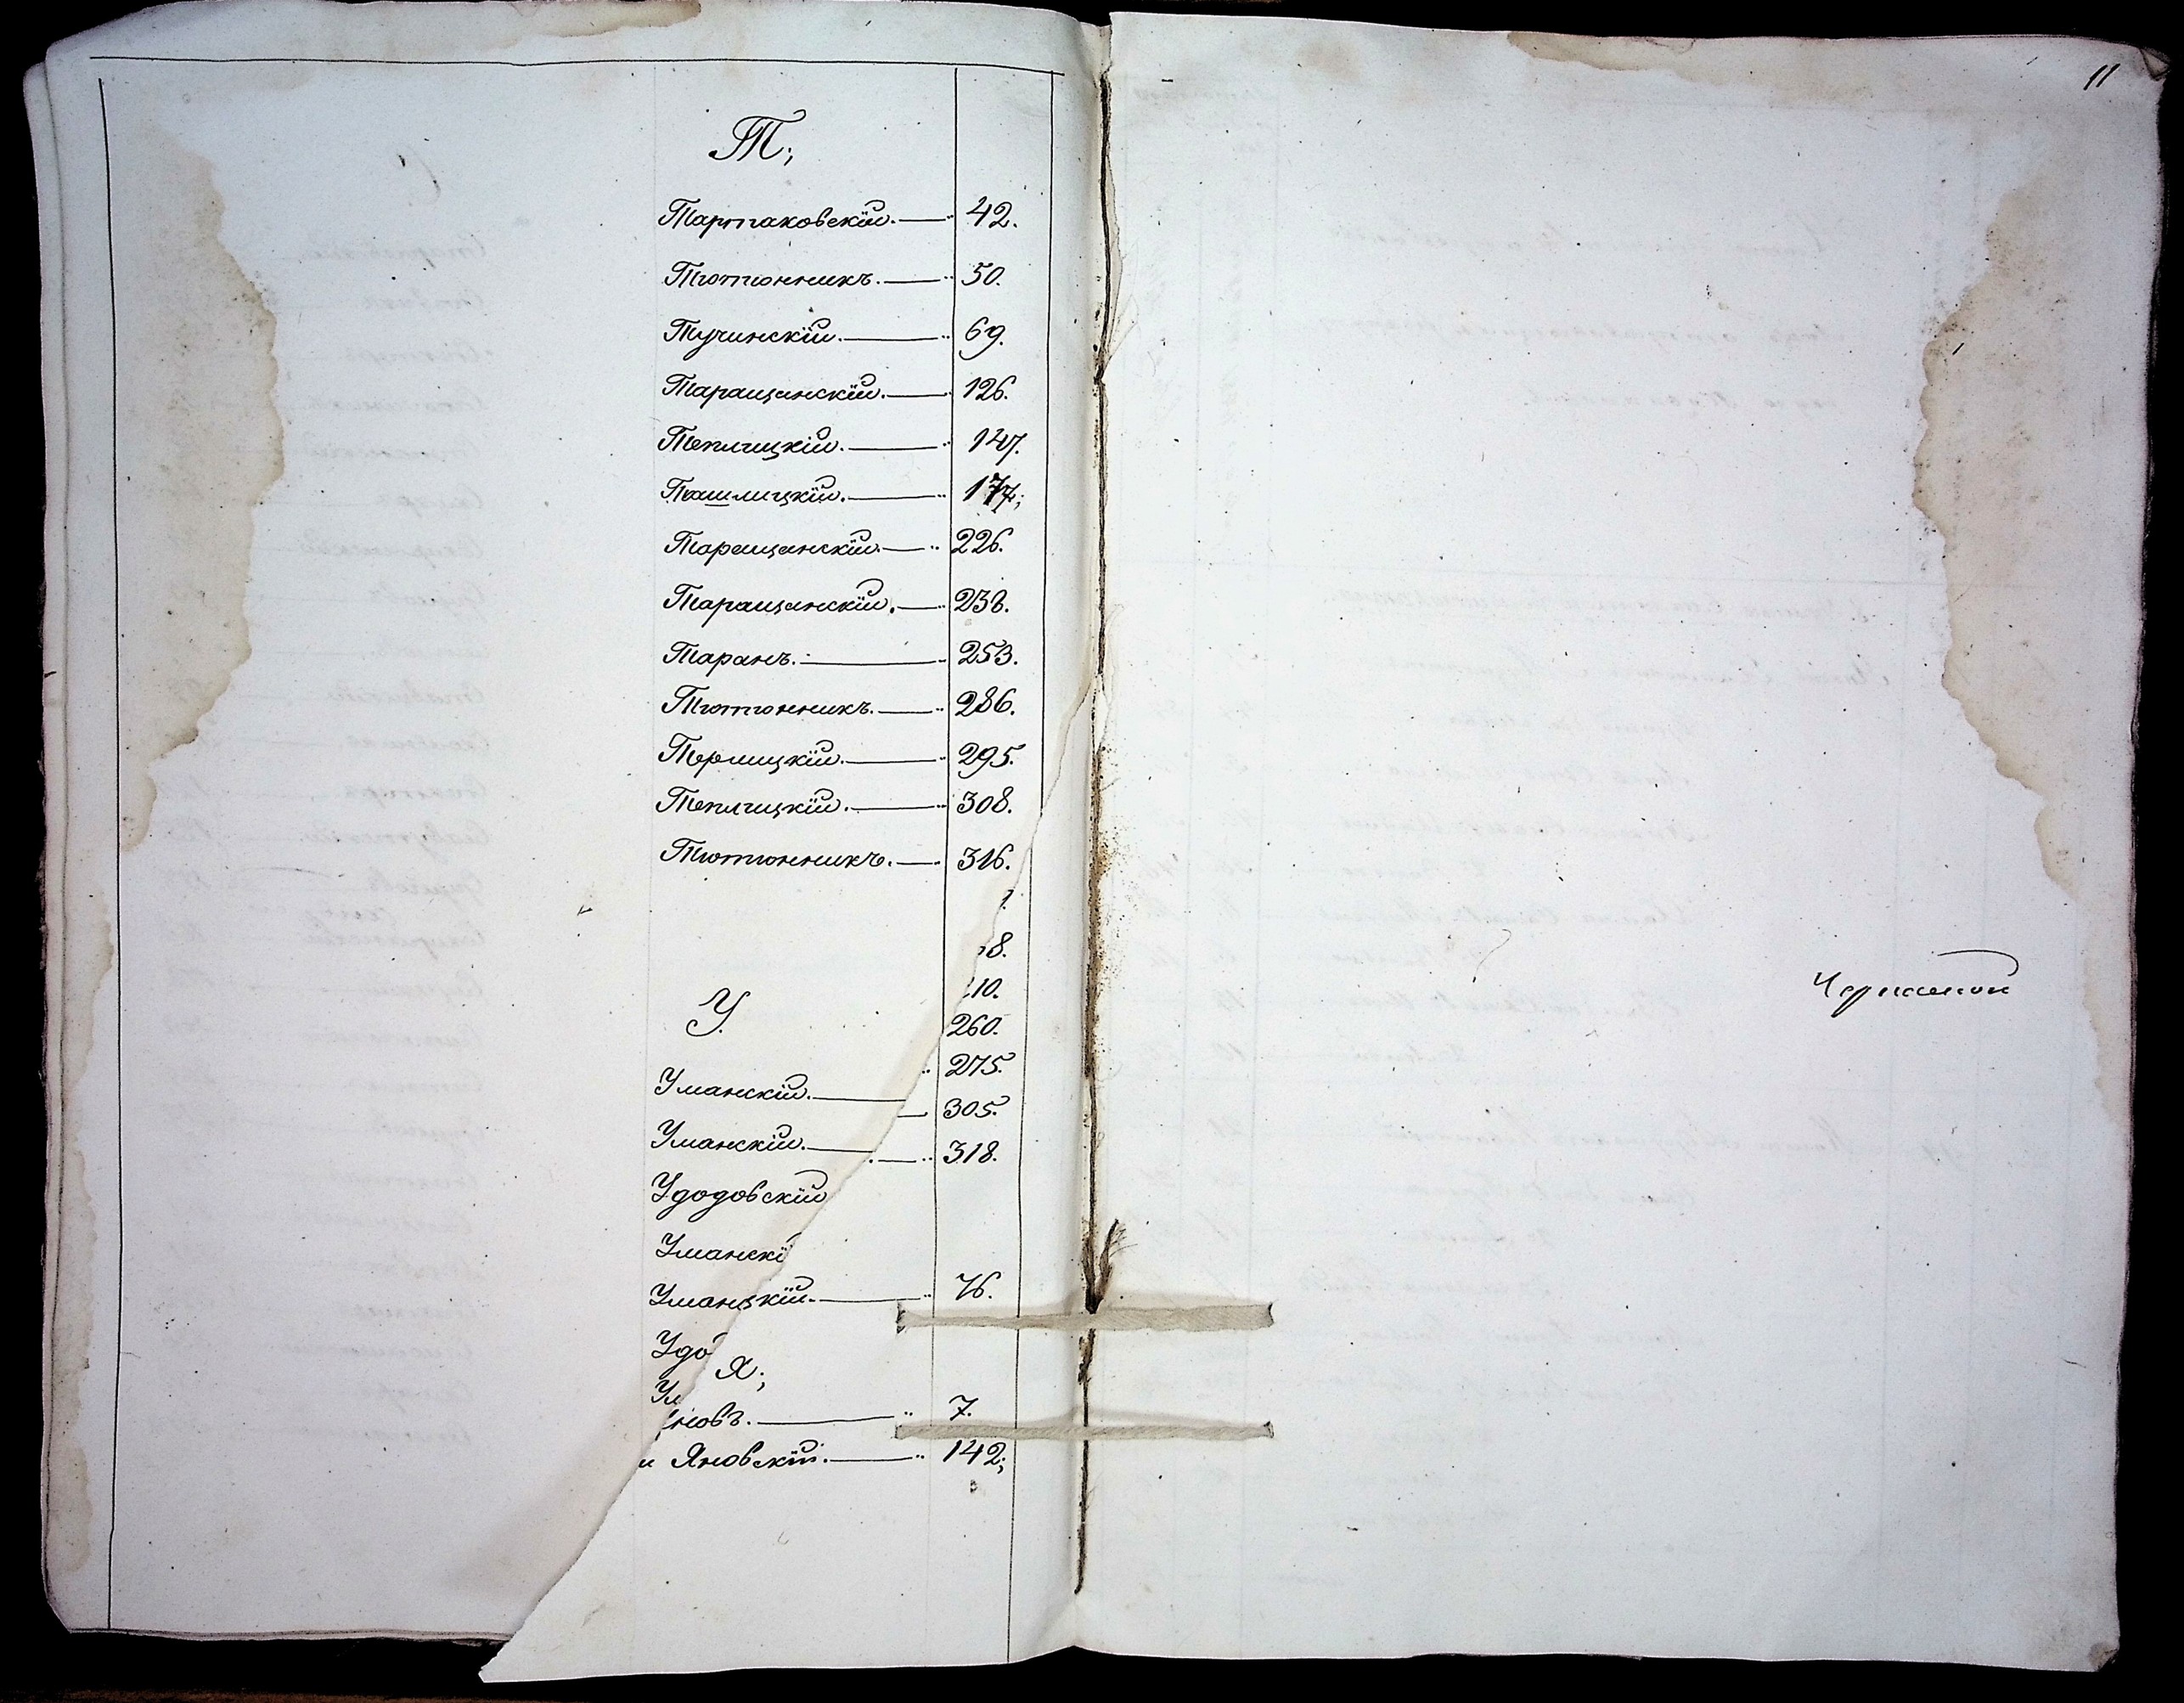 11
Т;
Тартаковскій. 42.
Тютюнникъ. 50.
Тучинскій. 69.
Таращанскій. 126.
Теплицкій. 147.
Ташлицкій. 177;
Таращанскій. 226.
Таращанскій. 238.
Таранъ. 253.
Тютюнникъ. 286.
Терлицкій. 295.
Теплицкій. 308.
Тютюнникъ. 316.
8.
10.
У.
260.
275.
Уманскій.
305.
Уманскій.
318.
Удодовскій
Умански
Уманскій. 76.
Удо
Я;
Ум
новъ. 7.
и Яновскій. 142;